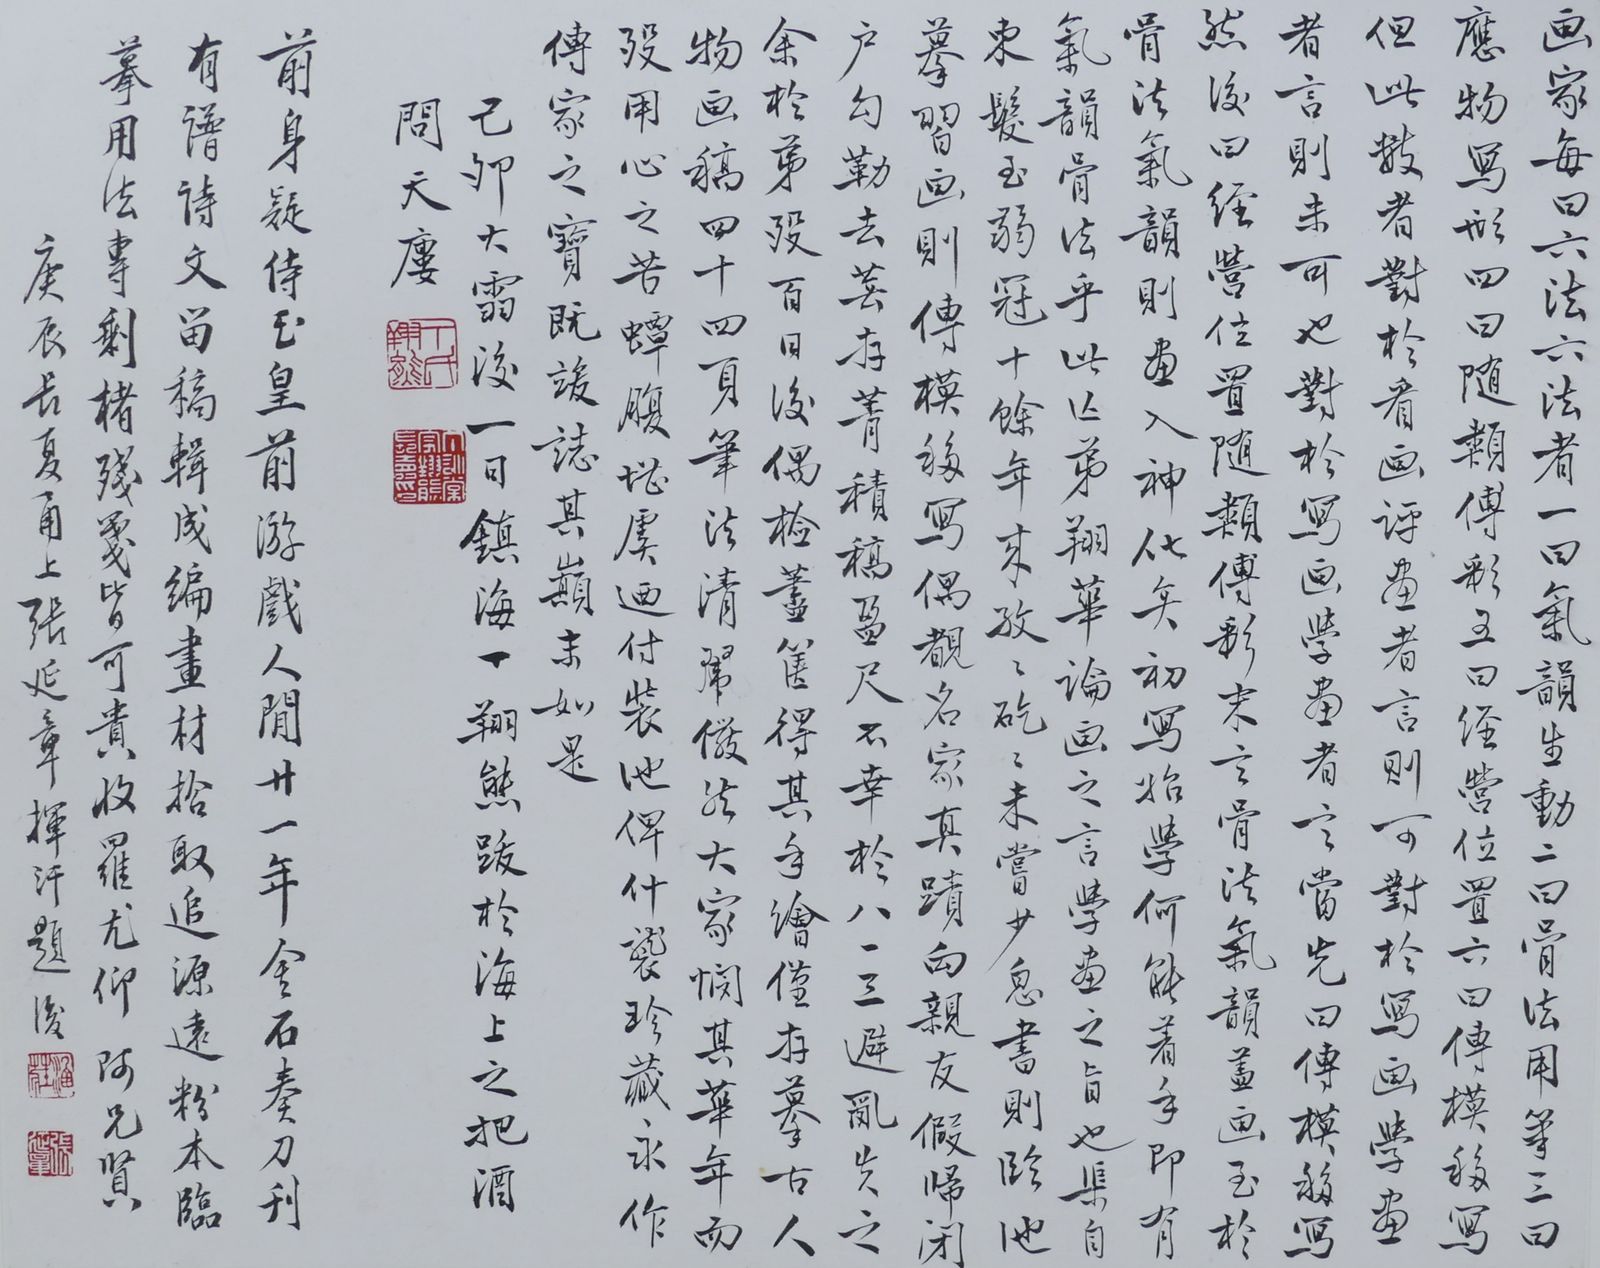 画家每曰六法六法者一曰氣韻生動二曰骨法用筆三曰
應物写形四曰随類傅彩五曰經營位置六曰傳模移写
但此數者對於看画評画者言則可對於写画學画
者言則未可也對於写画學画者言當先曰傳模移写
然後曰經營位置随類傅彩末言骨法氣韻蓋画至於
骨法氣韻則画入神化矣初写始學何能着手即有
氣韻骨法乎此亡弟翔華論画之言學画之旨也渠自
束髮至弱冠十餘年来孜〻矻〻未嘗少息書則臨池
摹習画則傳模移写偶覩名家真蹟向親友假歸閉
户勾勒去蕪存菁積稿盈尺不幸於八一三避亂失之
余於弟殁百日後偶檢藎篋得其手繪僅存摹古人
物画稿四十四頁筆法清晰儼然大家憫其華年而
殁用心之苦蟫腹堪虞廼付裝池俾什襲珍藏永作
傳家之寶既竣誌其巔末如是
己卯大雪後一日鎮海丁翔熊跋於海上之把酒
問天廔
前身疑侍玉皇前游戲人間廿一年金石奏刀刊
有譜詩文留稿輯成編畫材拾取追源遠粉本臨
摹用法專剩楮殘箋皆可貴收羅尤仰阿兄賢
庚辰長夏甬上張延章揮汗題後